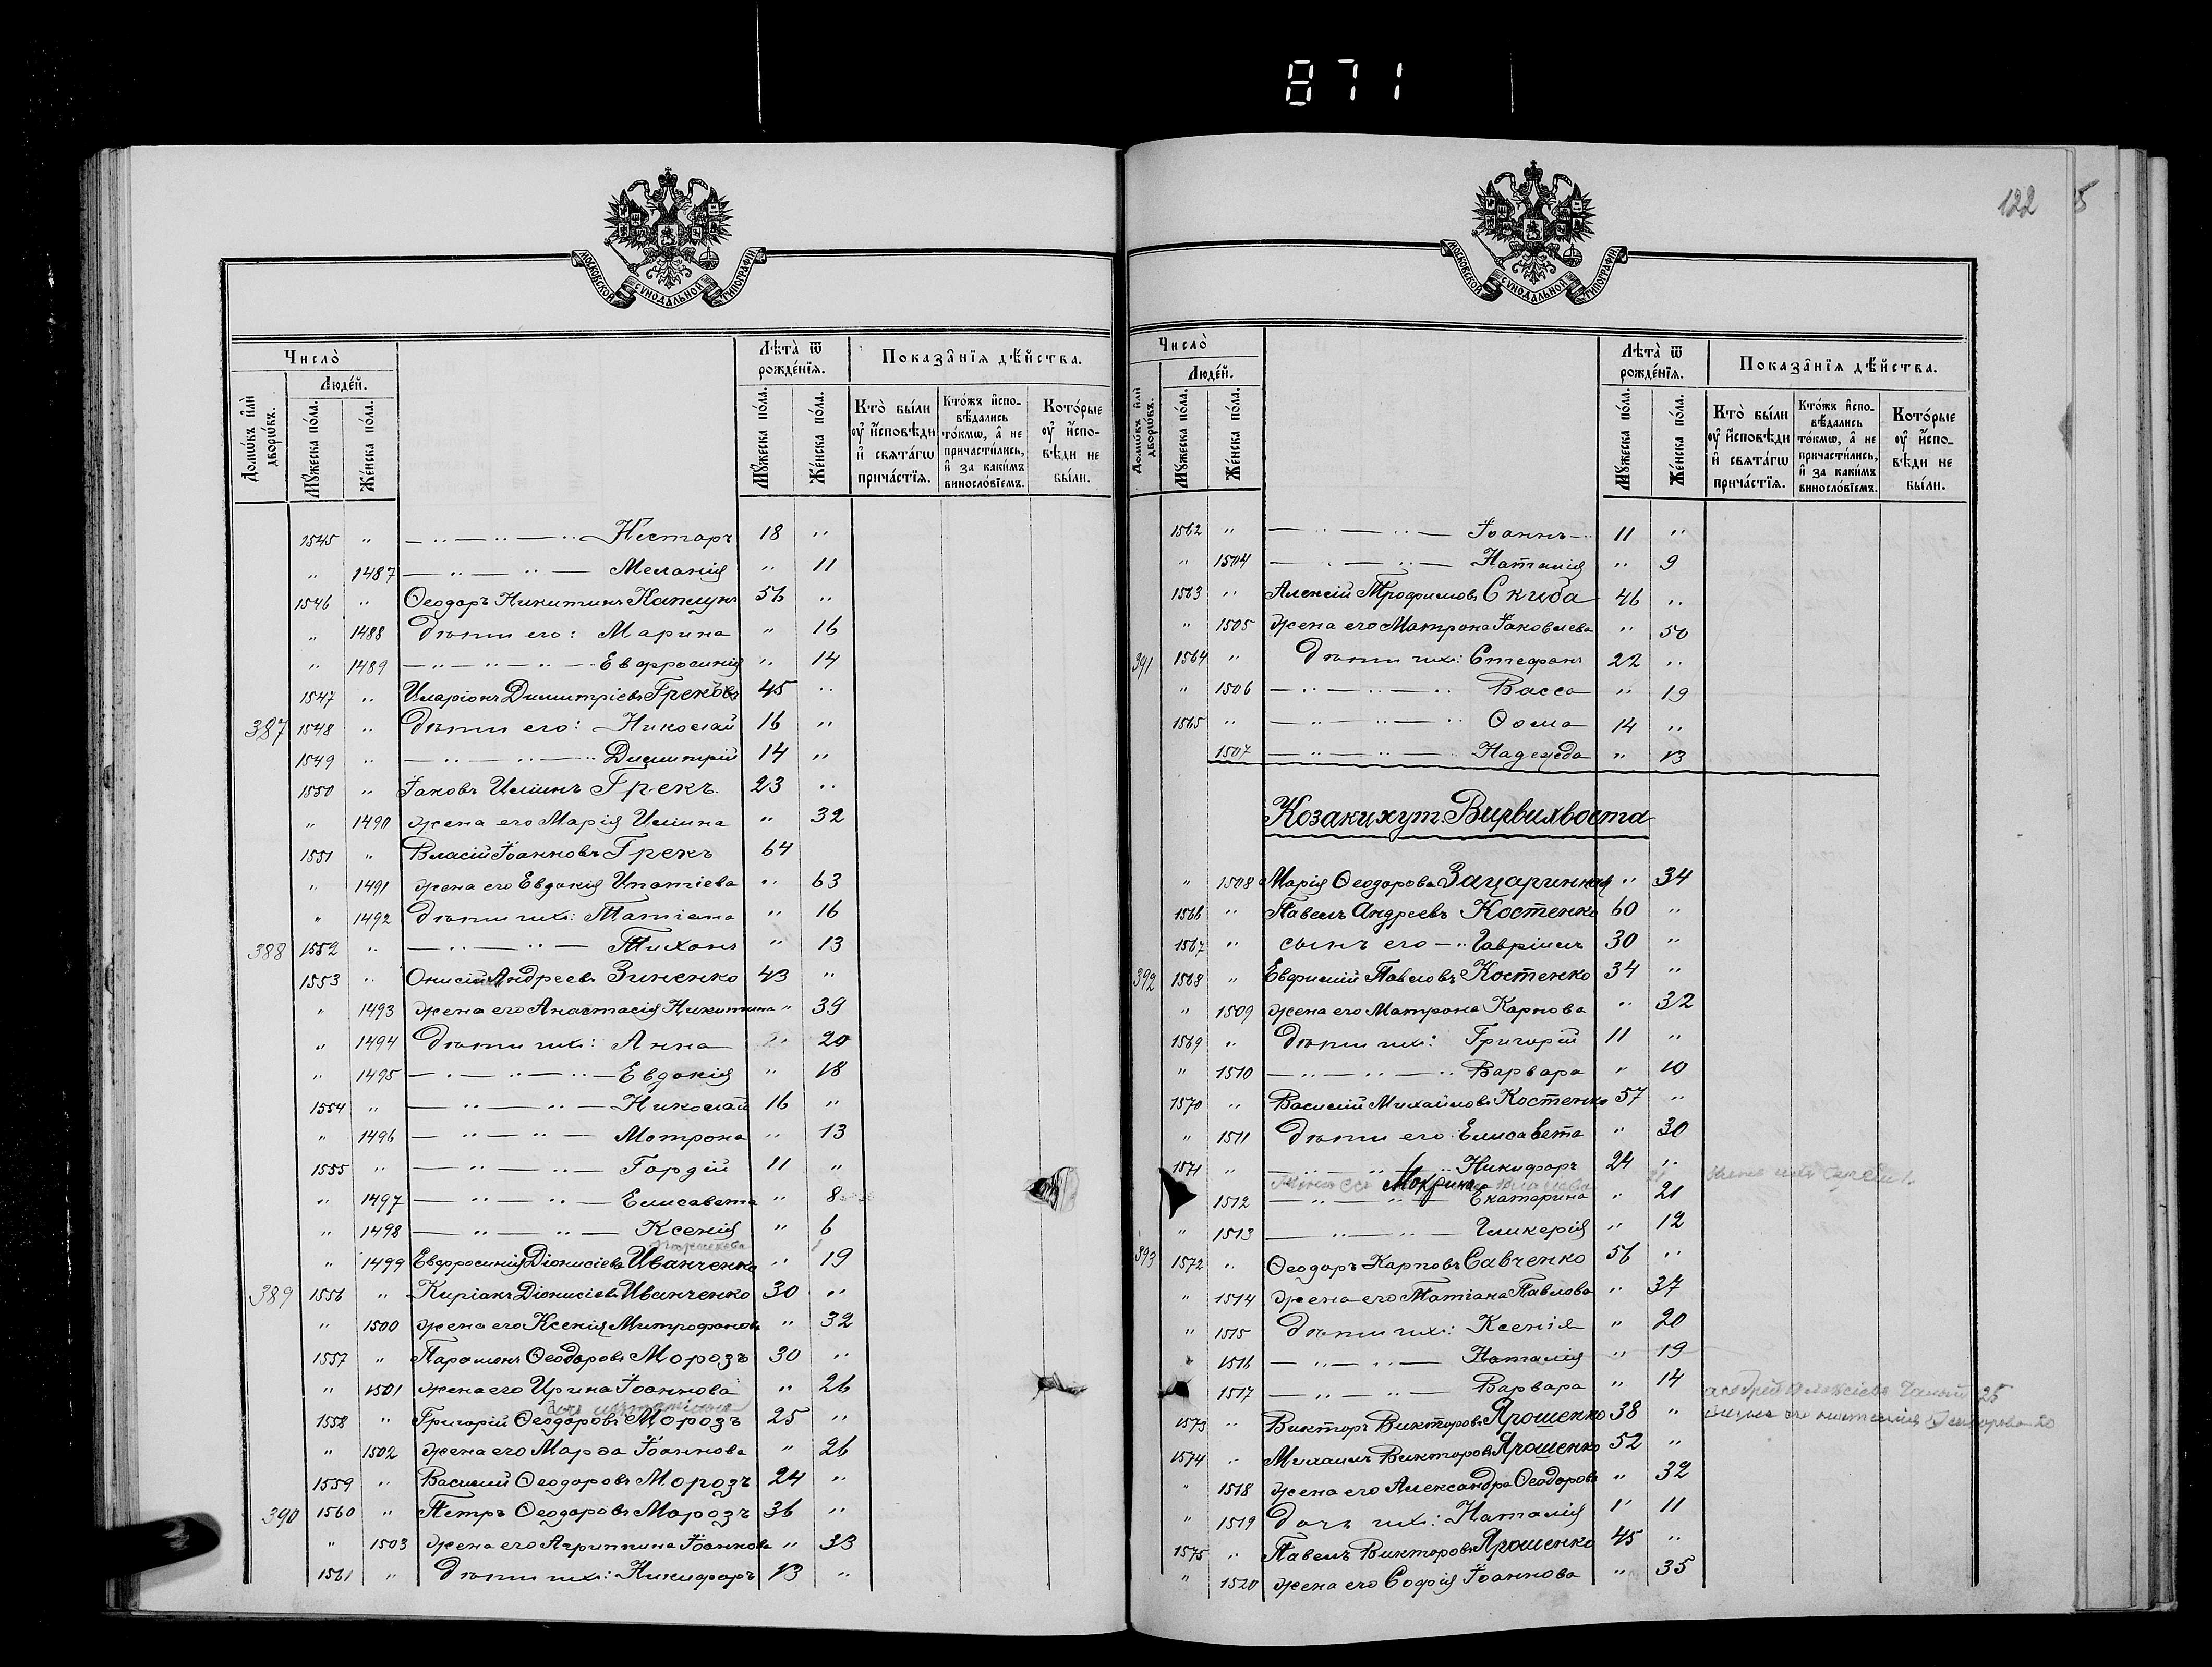 871
122
5
МОСКОВСКОЙ СѴНОДАЛЬНОЙ ТИПОГРАФІИ
Число̀
Домѡ́въ и҆лѝ дворѡ́въ.
Люде́й.
Мꙋ́жеска по́ла.
Же́нска по́ла.
Лѣта̀ ѿ рожде́нїѧ.
Мꙋ́жеска по́ла.
Же́нска по́ла.
Показа̑нїѧ дѣ́йства.
Кто̀ бы́ли ᲂу҆ и҆́сповѣди и҆ свѧта́гѡ прича́стїѧ.
Кто́жъ и҆спо-вѣ́дались то́кмѡ, а҆ не причасти́лись, и҆ за каки́мъ виносло́вїемъ.
Кото́рые ᲂу҆ и҆́спо-вѣди не бы́ли.
1545 " — " — " Несторъ 18 "
" 1487 — " — " — Меланія " 11
1546 " Ѳеодоръ Никитинъ Капшукъ 56 "
" 1488 дѣти его: Марина " 16
" 1489 — " — " — " — Евфросинія " 14
1547 " Иларіонъ Димитріевъ Грековъ 45 "
387 1548 " дѣти его: Николай 16 "
1549 " — " — " — Димитрій 14 "
1550 " Іаковъ Илиинъ Грекъ. 23 "
" 1490 жена его Марія Илиина " 32
1551 " Власій Іоанновъ Грекъ 64
" 1491 жена его Евдокія Ипатіева " 63
" 1492 дѣти ихъ: Татіана " 16
388 1552 " — " — " — Тихонъ " 13
1553 " Онисій Андреевъ Зиненко 43 "
" 1493 жена его Анастасія Никитина " 39
" 1494 дѣти ихъ: Анна " 20
" 1495 — " — " — " — Евдокія " 18
1554 " — " — " — Николай 16 "
" 1496 — " — " — Матрона " 13
1555 " — " — " — Гордій 11 "
" 1497 — " — " — Елисавета " 8
" 1498 — " — " — Ксенія " 6
" 1499 Евфросинія Діонисіева Иванченко " 19
389 1556 " Киріакъ Діонисіевъ Иванченко 30 "
" 1500 жена его Ксенія Митрофанова " 32
1557 " Парамонъ Ѳеодоровъ Морозъ 30 "
" 1501 жена его Ирина Іоаннова " 26
1558 " Григорій Ѳеодоровъ Морозъ 25 "
" 1502 жена его Марѳа Іоаннова " 26
1559 " Василій Ѳеодоровъ Морозъ 24 "
390 1560 " Петръ Ѳеодоровъ Морозъ 36 "
" 1503 жена его Агриппина Іоаннова " 33
1561 " дѣти ихъ: Никифоръ 13 "
МОСКОВСКОЙ СѴНОДАЛЬНОЙ ТИПОГРАФІИ
Число̀
Домѡ́въ и҆лѝ дворѡ́въ.
Люде́й.
Мꙋ́жеска по́ла.
Же́нска по́ла.
Лѣта̀ ѿ рожде́нїѧ.
Мꙋ́жеска по́ла.
Же́нска по́ла.
Показа̑нїѧ дѣ́йства.
Кто̀ бы́ли ᲂу҆ и҆́сповѣди и҆ свѧта́гѡ прича́стїѧ.
Кто́жъ и҆спо-вѣ́дались то́кмѡ, а҆ не причасти́лись, и҆ за каки́мъ виносло́вїемъ.
Кото́рые ᲂу҆ и҆́спо-вѣди не бы́ли.
1562 " — " — " — Іоаннъ 11 "
" 1504 — " — " — Наталія " 9
1563 " Алексій Трофимовъ Скиба 46 "
" 1505 жена его Матрона Іаковлева " 50
391 1564 " дѣти ихъ: Стефанъ 22 "
" 1506 — " — " — " Васса " 19
1565 " — " — " — " Ѳома 14 "
1507 — " — " — Надежда " 13
Козаки хут. Вирвихвоста
" 1508 Марія Ѳеодорова Зацаринная " 34
1566 " Павелъ Андреевъ Костенко 60 "
1567 " сынъ его — " Гавріилъ 30 "
392 1568 " Евфимій Павловъ Костенко 34 "
" 1509 жена его Матрона Карпова " 32
1569 " дѣти ихъ: Григорій 11 "
" 1510 — " — " — " Варвара " 10
1570 " Василій Михайловъ Костенко 57 "
" 1511 дѣти его: Елисавета " 30
1571 " — " — " Никифоръ 24 "
Мокрина
1512 — " — " — Екатерина " 21
" 1513 — " — " — Гликерія " 12
393 1572 " Ѳеодоръ Карповъ Савченко 56 "
" 1514 жена его Татіана Павлова " 37
" 1515 дѣти ихъ: Ксенія " 20
" 1516 — " — " — Наталія " 19
1517 — " — " — Варвара " 14
25
1573 " Викторъ Викторовъ Ярошенко 38 "
20
1574 " Михаилъ Викторовъ Ярошенко 52 "
" 1518 жена его Александра Ѳеодорова " 32
" 1519 дочь ихъ: Наталія " 11
1575 " Павелъ Викторовъ Ярошенко 45 "
" 1520 жена его Софія Іоаннова " 35